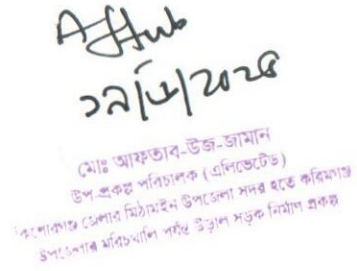 মোঃ আফতাব-উজ-জামান
উপ-প্রকল্প পরিচালক (এলিভেটেড)
কিশোরগঞ্জ জেলার মিঠামইন উপজেলা সদর হতে করিমগঞ্জ
উপজেলার মরিচখালি পর্যন্ত উড়াল সড়ক নির্মাণ প্রকল্প